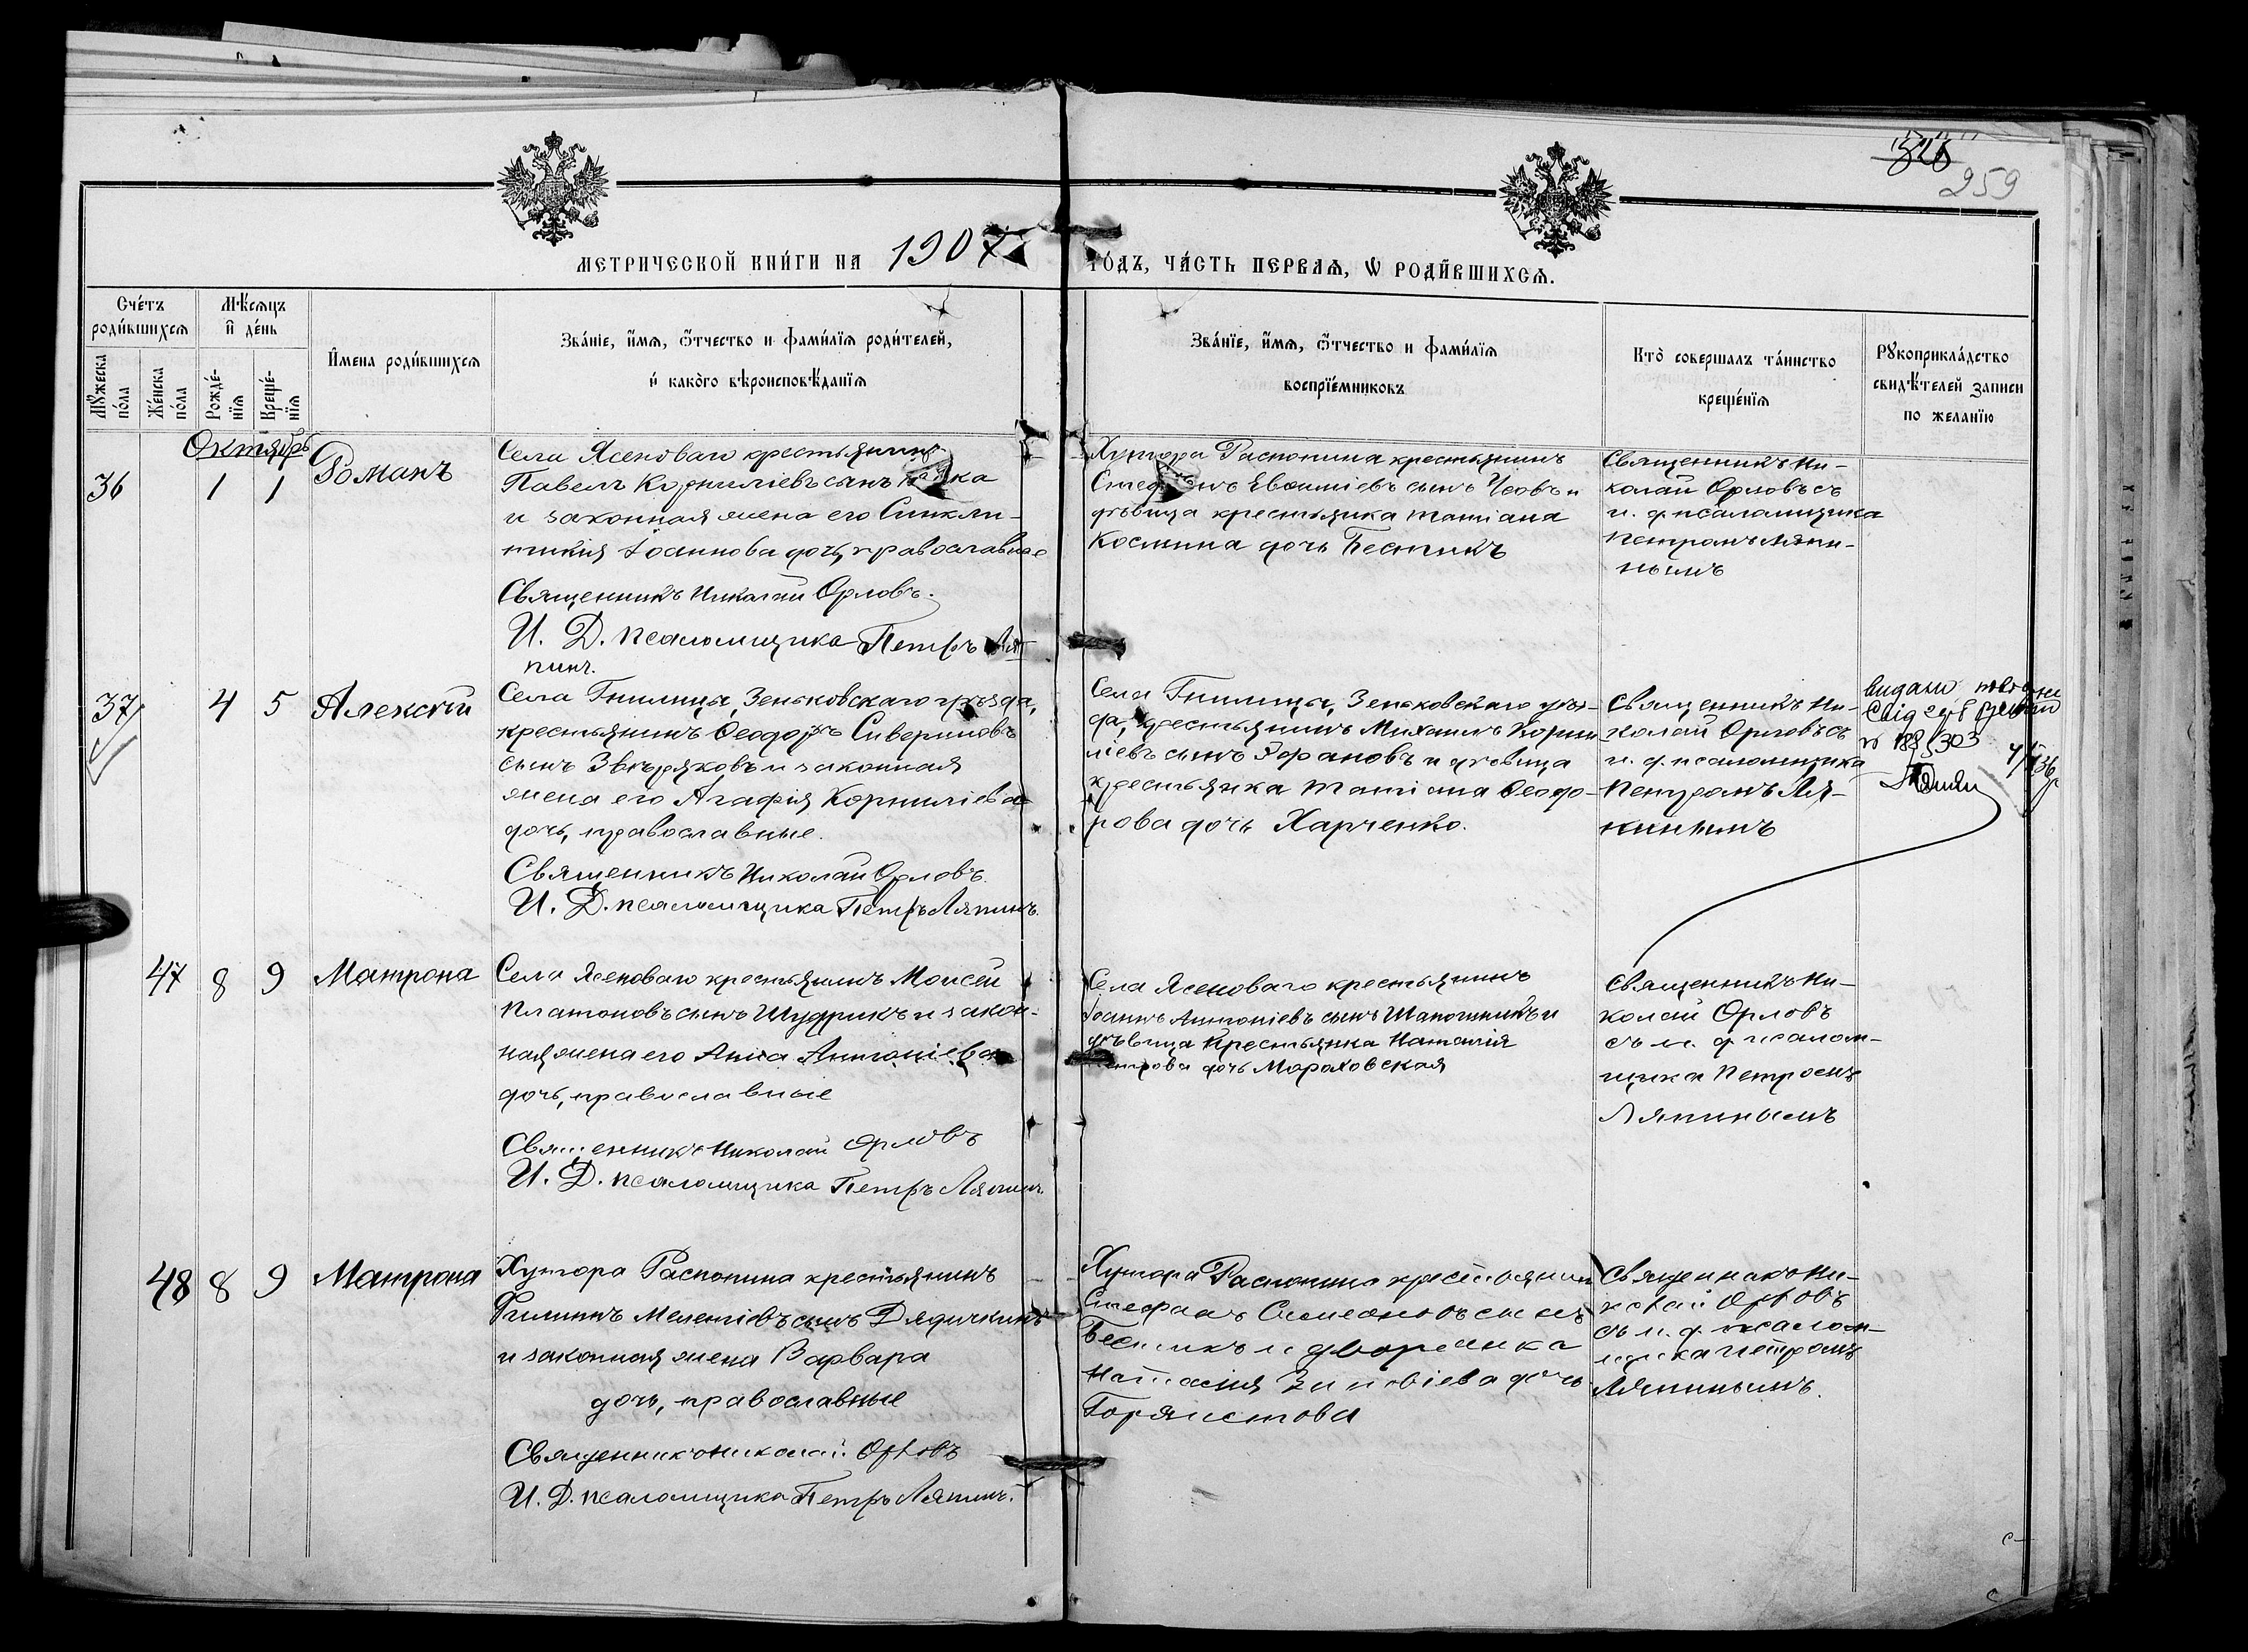 259
МЕТРИЧЕСКОЙ КНИ́ГИ НА 1907
ГО́ДЪ, ЧА́СТЬ ПЕРВАѦ, Ѡ РОДИ́ВШИХСѦ.
Сче́тъ роди́вшихсѧ
Мѣ́сѧцъ и҆ де́нь
Мꙋ́жеска по́ла
Же́нска по́ла
Рожде́-нїѧ
Креще́-нїѧ
И҆мена роди́вшихсѧ
Зва́нїе, и҆́мѧ, ѻ҆́тчество и фами́лїѧ роди́телей,
и҆ како́го вѣроисповѣ́данїѧ
Зва́нїе, и҆́мѧ, ѻ҆́тчество и фами́лїѧ
воспрїе́мниковъ
Кто̀ совершалъ та́инство
креще́нїѧ
Рꙋкоприкла́дство
свидѣ́телей записи
по жела́нїю
Октябрь
36 1 1 Романъ
Села Ясеноваго крестьянинъ
Павелъ Корниліевъ сынъ
и законная жена его Синкли-
тикія Іоаннова дочь, православные
Священникъ Николай Орловъ.
И. Д. псаломщика Петръ Ля
пинъ.
Хутора Распопина крестьянинъ
Стефанъ Евфиміевъ сынъ и
дѣвица крестьянка Татіана
Космина дочь Бестикъ
Священникъ Ни-
колай Орловъ съ
и. д. псаломщика
Петромъ Ляпи-
нымъ
37 4 5 Алексѣй
Села Гнилицы, Зеньковскаго уѣзда,
крестьянинъ Ѳеодоръ Севериновъ
сынъ Звѣряковъ и законная
жена его Агафія Корниліева
дочь, православные.
Священникъ Николай Орловъ.
И. Д. псаломщика Петръ Ляпинъ.
Села Гнилицы, Зеньковскаго уѣз-
да, крестьянинъ Михаилъ Корни
ліевъ сынъ Эфановъ и дѣвица
крестьянка Татіана Ѳеодо-
рова дочь Харченко.
Священникъ Ни-
колай Орловъ съ
и. д. псаломщика
Петромъ Ля-
пинымъ
видано
303
47 8 9 Матрона
Села Ясеноваго крестьянинъ Моисей
Платоновъ сынъ Шудрикъ и закон-
ная жена его Анна Антоніева
дочь, православные
Священникъ Николай Орловъ
И. Д. псаломщика Петръ Ляпинъ.
Села Ясеноваго крестьянинъ
Іоаннъ Антоніевъ сынъ Шапошникъ и
дѣвица крестьянка Наталія
Петрова дочь Мораховская
Священникъ Ни-
колай Орловъ
съ и. д. псалом-
щика Петромъ
Ляпинымъ
48 8 9 Матрона
Хутора Распопина крестьянинъ
Филиппъ Мелентіевъ сынъ Дядичкинъ
и законная жена Варвара
дочь, православные
Священникъ Николай Орловъ
И. Д. псаломщика Петръ Ляпинъ.
Хутора Распопина крестьянинъ
Стефанъ Симеоновъ сынъ
Бестикъ и дворянка
Наталія Зиновіева дочь
Священникъ Ни-
колай Орловъ
съ и. д. псалом-
щика Петромъ
Ляпинымъ.